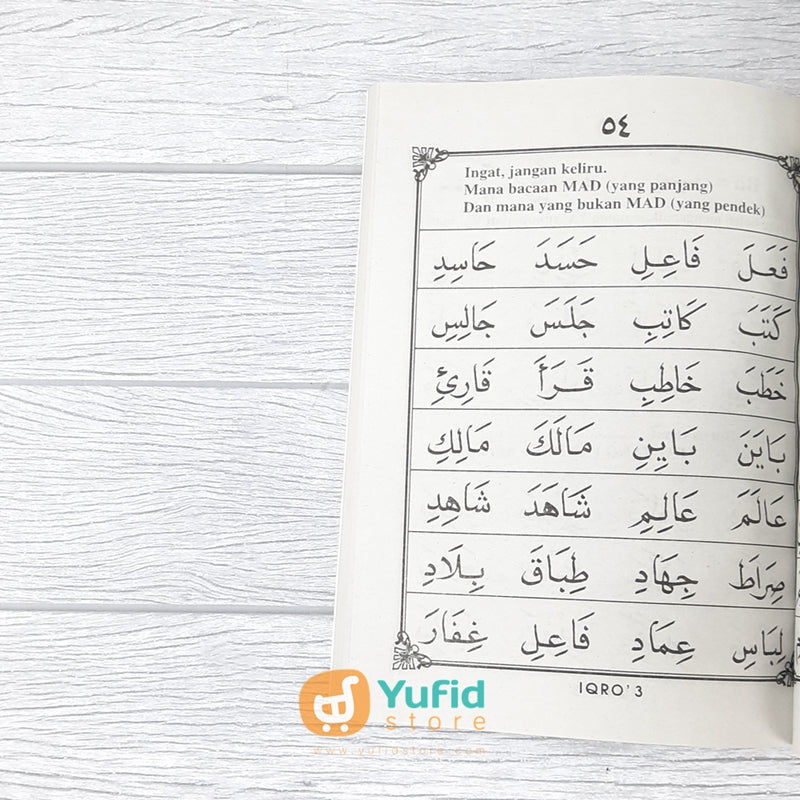 ٥٤
Ingat, jangan keliru.
Mana bacaan MAD (yang panjang)
Dan mana yang bukan MAD (yang pendek)
فَعَلَ فَاعِلِ حَسَدَ حَاسِدِ
كَتَبَ كَاتِبِ جَلَسَ جَالِسِ
خَطَبَ خَاطِبِ قَرَأَ قَارِئِ
بَايَنَ بَايِنِ مَالَكَ مَالِكِ
عَالَمَ عَالِمِ شَاهَدَ شَاهِدِ
صِرَاطَ جِهَادِ طِبَاقَ بِلَادِ
لِبَاسِ عِمَادِ فَاعِلِ غِفَارَ
IQRO' 3
Yufid
store
www.yufidstore.com